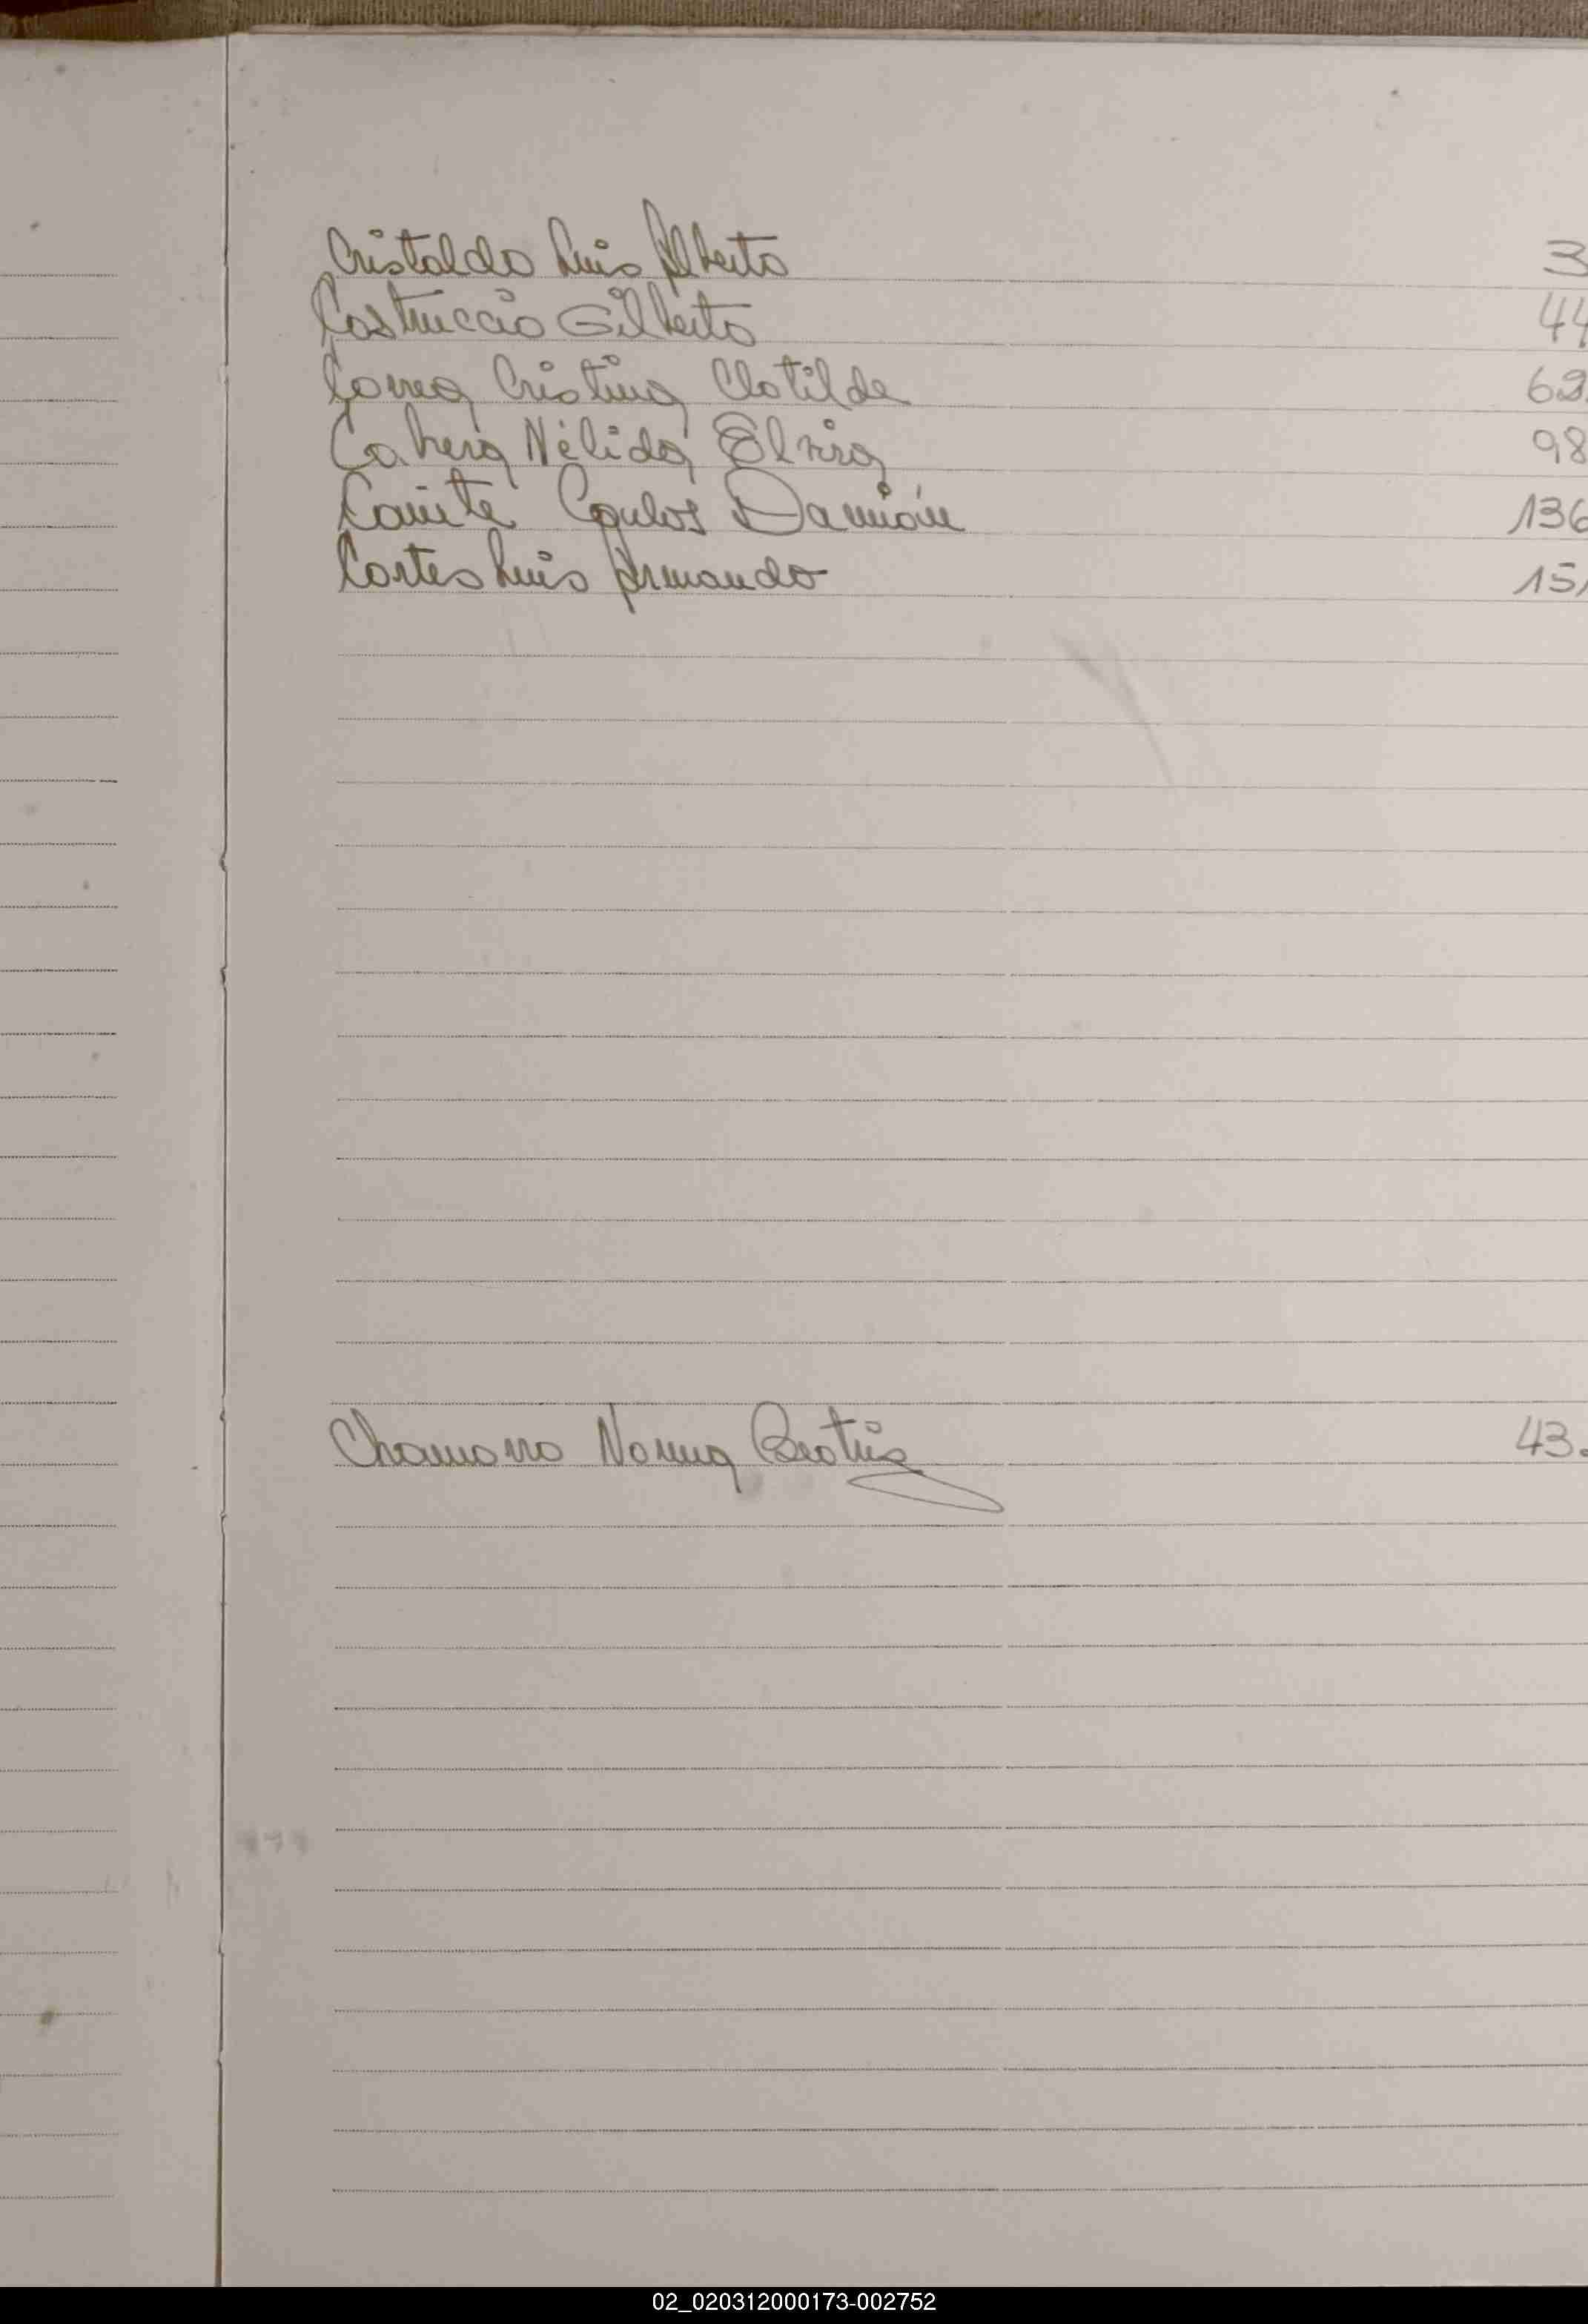 Cristaldo Luis Alberto 3
Castruccio Gilberto 44
Correa Cristina Clotilde 62
Cabrera Nélida Elvira 98
Cañete Carlos Damián 136
Cortes Luis Armando 151
Chamorro Norma Beatriz 43.
02_020312000173-002752